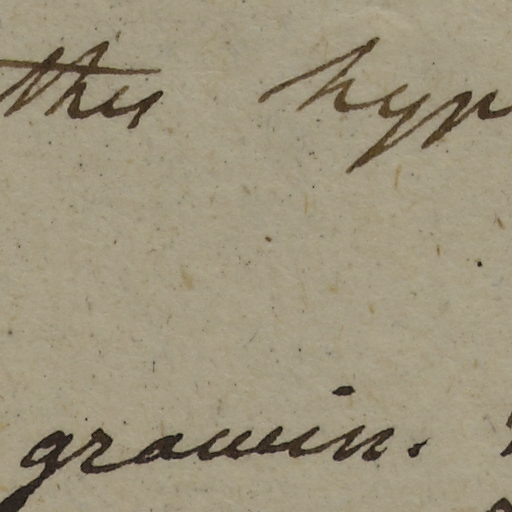 this hyp
growin.